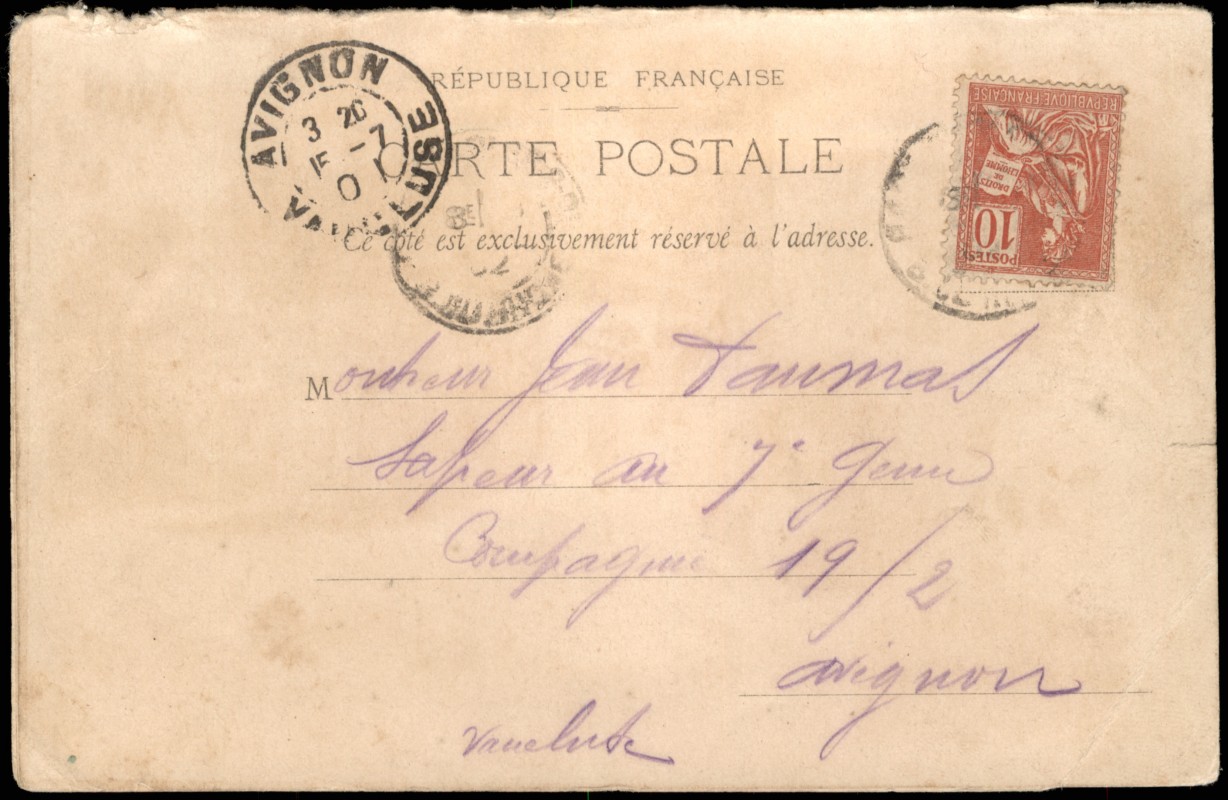 RÉPUBLIQUE FRANÇAISE
CARTE POSTALE
Ce côté est exclusivement réservé à l'adresse.
AVIGNON
3 26
15 -7
0
VAUCLUSE
REPVBLIQVE FRANÇAISE
DROITS
DE
L'HOMME
10
POSTES
Monsieur Jean Daumas
Sapeur au 7e Genie
Compagnie 19/2
Avignon
Vaucluse